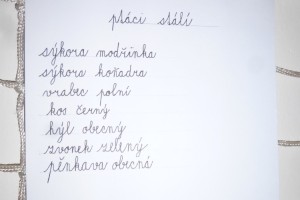 ptáci stálí
sýkora modřinka
sýkora koňadra
vrabec polní
kos černý
hýl obecný
zvonek zelený
pěnkava obecná